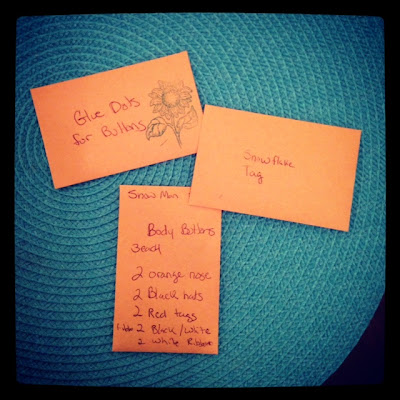 Glue Dots
for Buttons
Snowflake
Tag
Snow Man
Body Buttons
3 each
2 orange nose
2 Black hats
2 Red tags
2 Black/White
2 White Ribbon